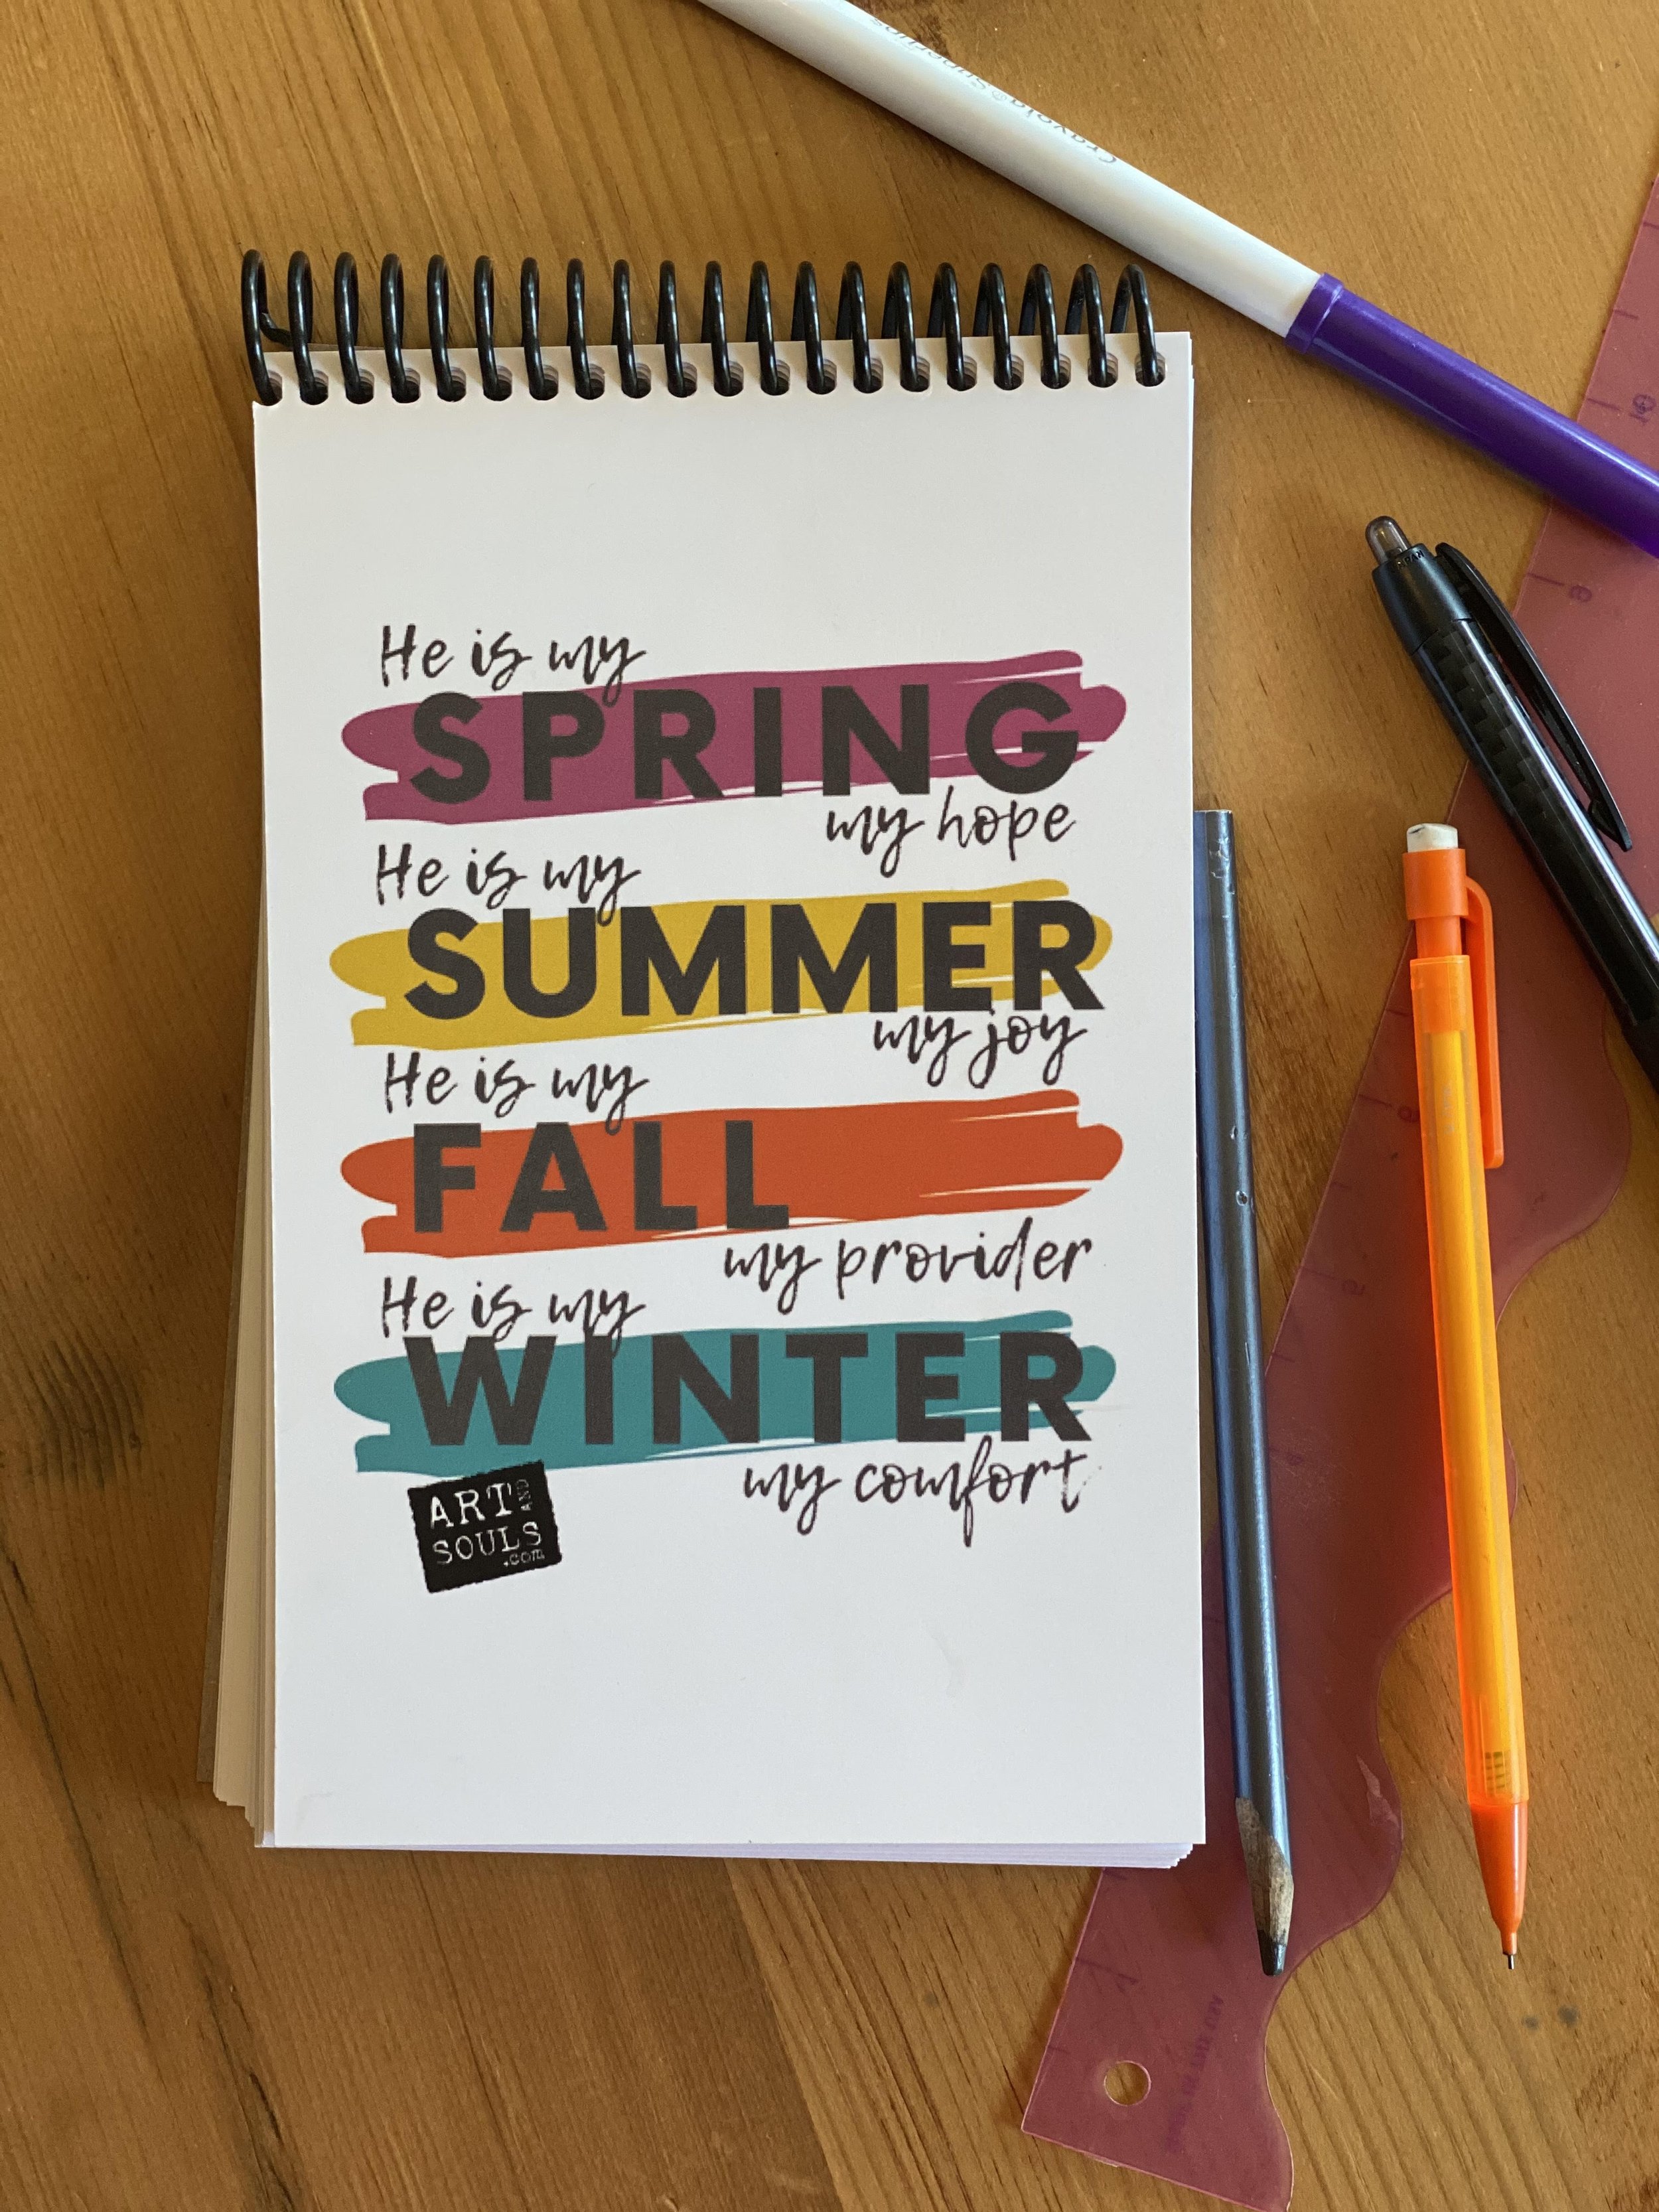 Crayola® SuperTips
He is my
SPRING
my hope
He is my
SUMMER
my joy
He is my
FALL
my provider
He is my
WINTER
my comfort
ART AND
SOULS
.com